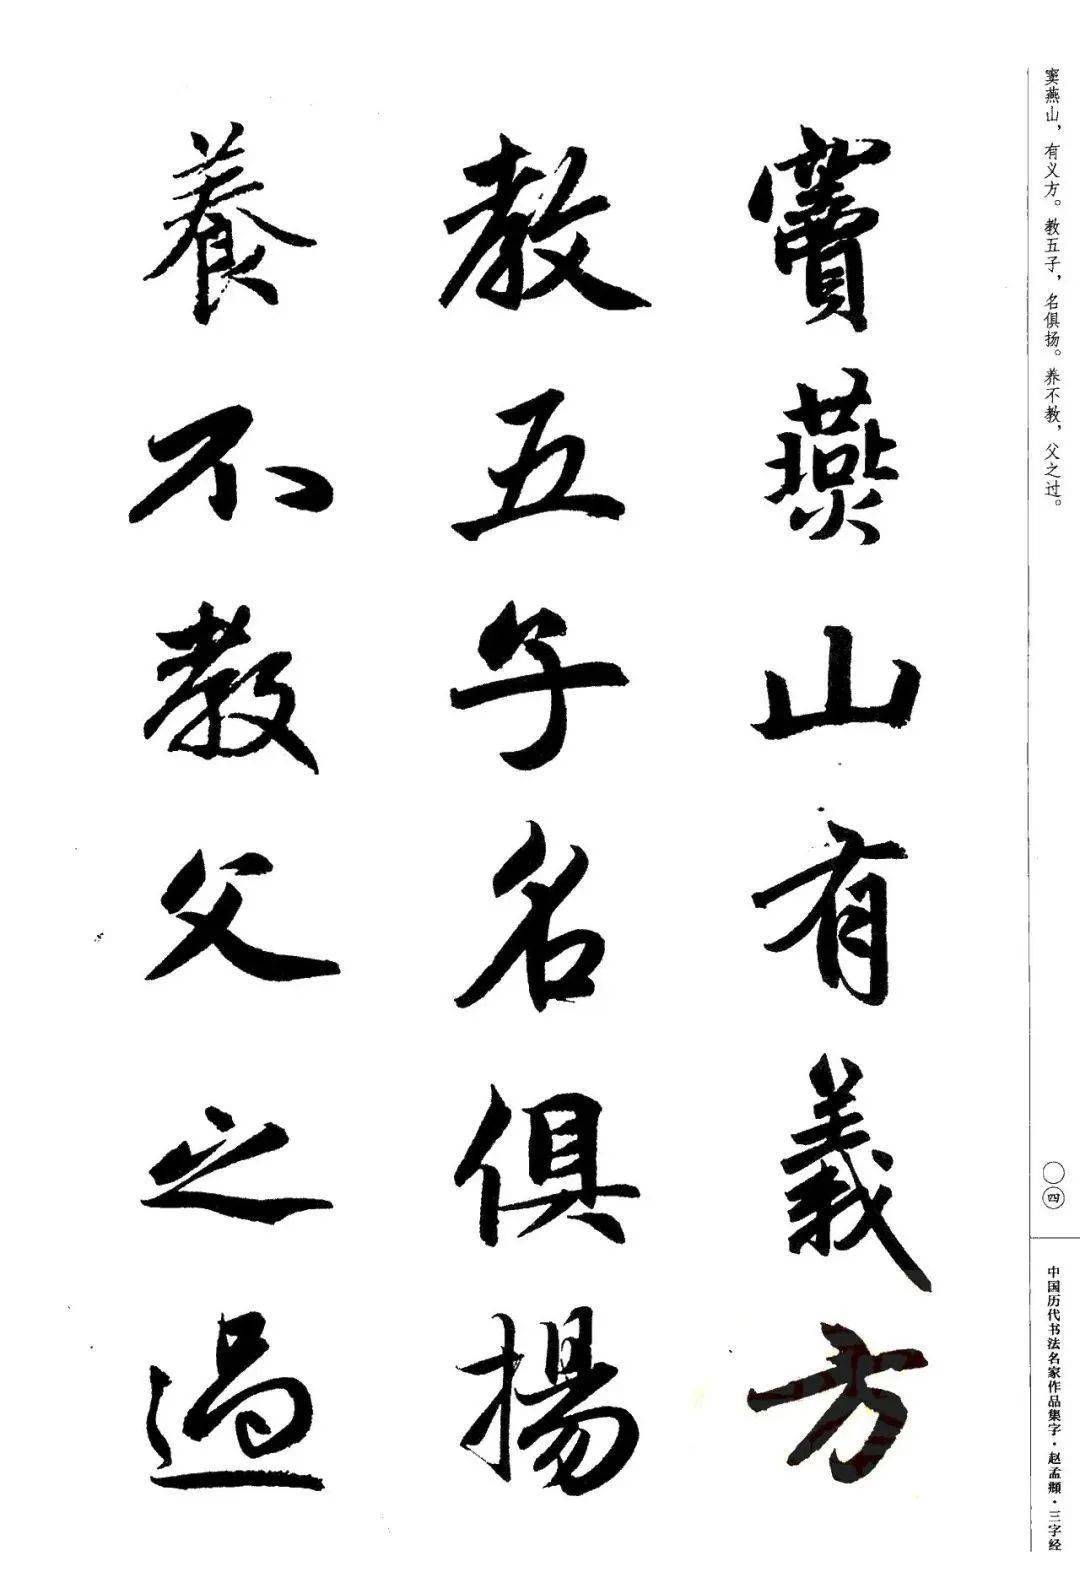 窦燕山，有义方。教五子，名俱扬。养不教，父之过。
〇四
中国历代书法名家作品集字·赵孟頫·三字经
竇燕山有義方
教五子名俱揚
養不教父之過